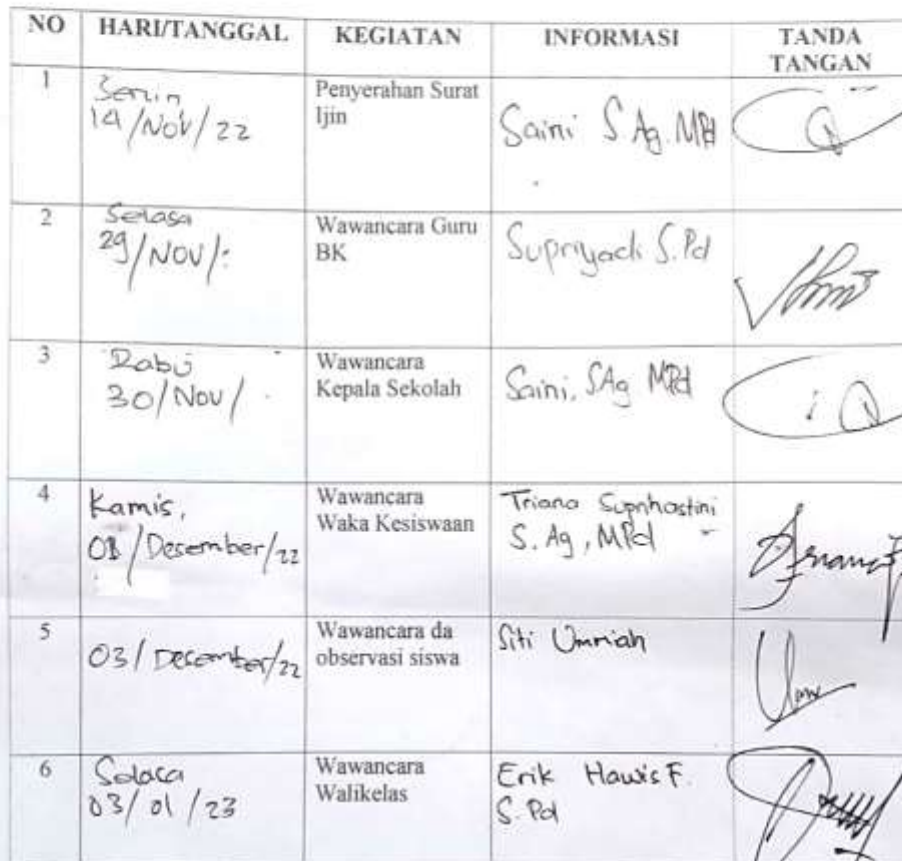 NO HARI/TANGGAL KEGIATAN INFORMASI TANDA TANGAN
1 Senin 14/Nov/22 Penyerahan Surat Ijin Saini S.Ag. MPd
2 Selasa 29/Nov/ Wawancara Guru BK Supriyadi S.Pd
3 Rabu 30/Nov/ Wawancara Kepala Sekolah Saini, SAg MPd
4 Kamis, 01/Desember/22 Wawancara Waka Kesiswaan Triana S.Ag, MPd
5 03/Desember/22 Wawancara da observasi siswa Siti Umniah
6 Selasa 03/01/23 Wawancara Walikelas Erik Hawis F. S.Pd